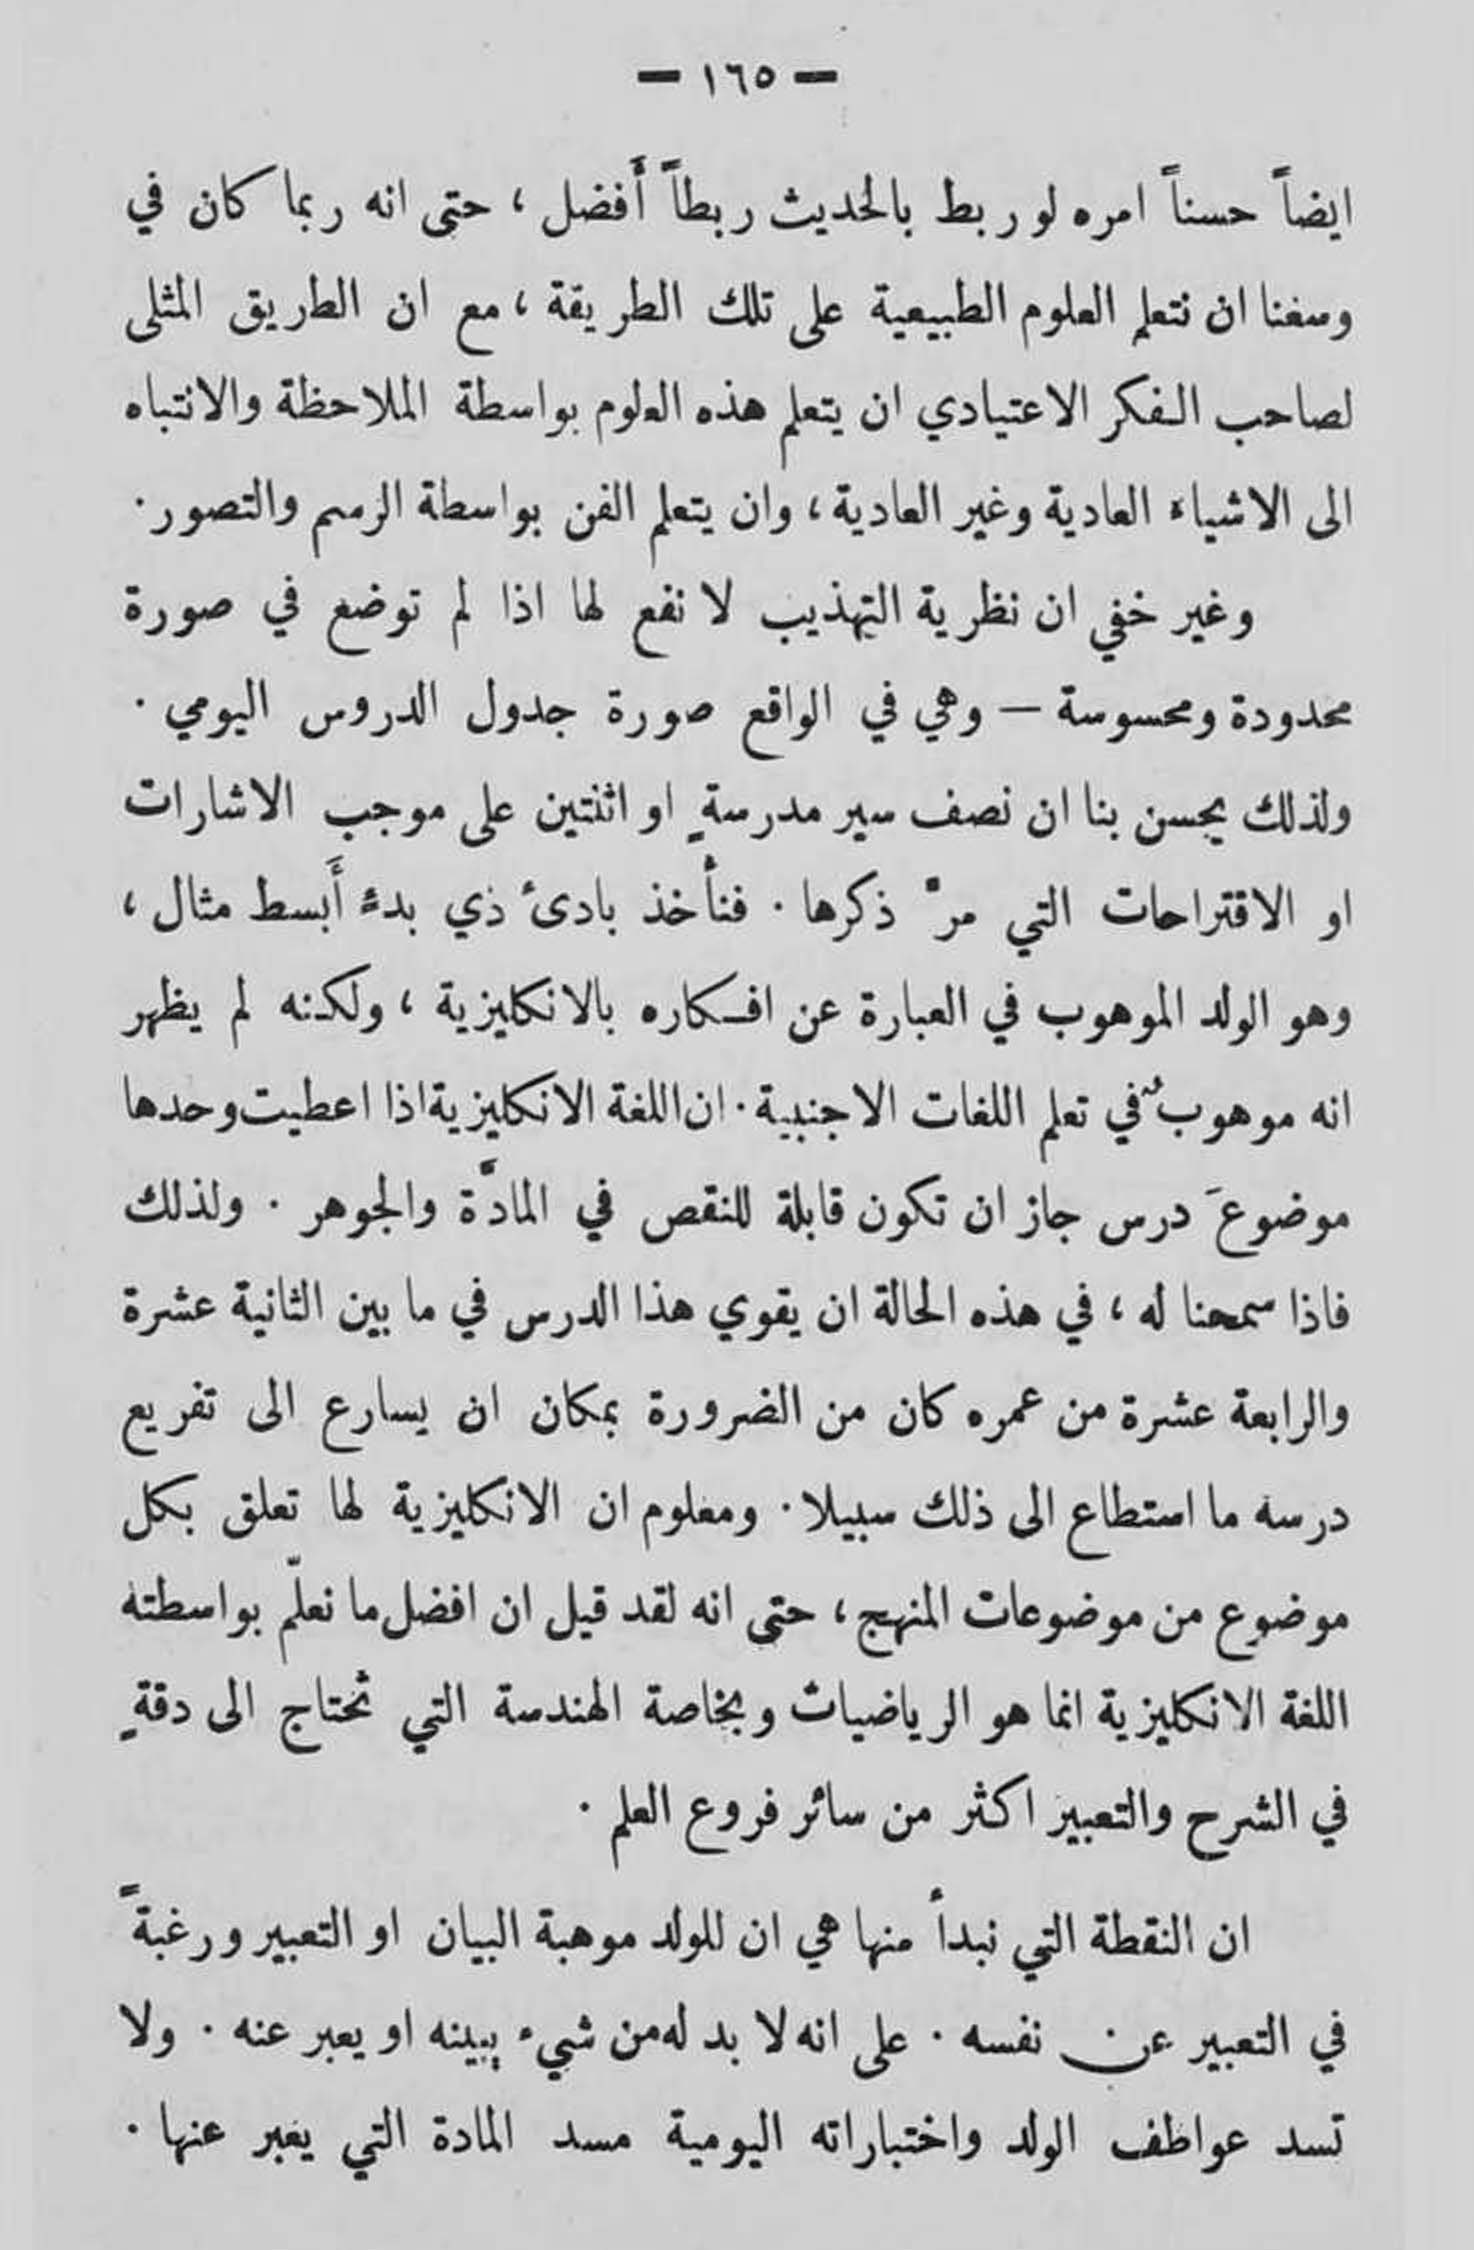 — ١٦٥ —
ايضاً حسناً امره لو ربط بالحديث ربطاً أَفضل ، حتى انه ربما كان في
وسعنا ان نتعلم العلوم الطبيعية على تلك الطريقة ، مع ان الطريق المثلى
لصاحب الفكر الاعتيادي ان يتعلم هذه العلوم بواسطة الملاحظة والانتباه
الى الاشياء العادية وغير العادية ، وان يتعلم الفن بواسطة الرسم والتصور .
وغير خفي ان نظرية التهذيب لا نفع لها اذا لم توضع في صورة
محدودة ومحسوسة — وهي في الواقع صورة جدول الدروس اليومي .
ولذلك يحسن بنا ان نصف سير مدرسةٍ او اثنتين على موجب الاشارات
او الاقتراحات التي مرَّ ذكرها . فنأخذ بادىء ذي بدءٍ أَبسط مثال ،
وهو الولد الموهوب في العبارة عن افكاره بالانكليزية ، ولكنه لم يظهر
انه موهوبٌ في تعلم اللغات الاجنبية . ان اللغة الانكليزية اذا اعطيت وحدها
موضوعَ درس جاز ان تكون قابلة للنقص في المادَّة والجوهر . ولذلك
فاذا سمحنا له ، في هذه الحالة ان يقوي هذا الدرس في ما بين الثانية عشرة
والرابعة عشرة من عمره كان من الضرورة بمكان ان يسارع الى تفريع
درسه ما استطاع الى ذلك سبيلا . ومعلوم ان الانكليزية لها تعلق بكل
موضوع من موضوعات المنهج ، حتى انه لقد قيل ان افضل ما نعلّم بواسطته
اللغة الانكليزية انما هو الرياضيات وبخاصة الهندسة التي تحتاج الى دقةٍ
في الشرح والتعبير اكثر من سائر فروع العلم .
ان النقطة التي نبدأ منها هي ان للولد موهبة البيان او التعبير ورغبةً
في التعبير عن نفسه . على انه لا بد له من شيء يبينه او يعبر عنه . ولا
تسد عواطف الولد واختباراته اليومية مسد المادة التي يعبر عنها .